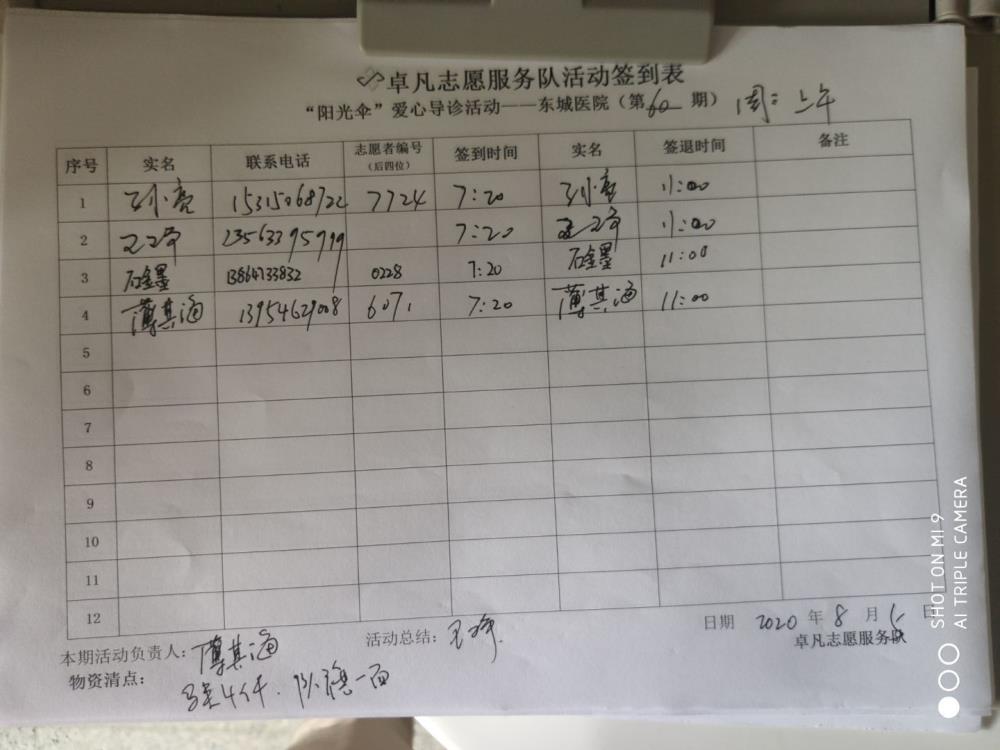 卓凡志愿服务队活动签到表
“阳光伞”爱心导诊活动——东城医院（第60期） 周二 上午
序号 实名 联系电话 志愿者编号（后四位） 签到时间 实名 签退时间 备注
1 孙亮 7724 7:20 孙亮 11:00
2 7:20 11:00
3 石金墨 13864733832 0228 7:20 石金墨 11:00
4 薄其海 13954629008 6071 7:20 薄其海 11:00
5
6
7
8
9
10
11
12
日期 2020 年 8 月 日
本期活动负责人: 薄其海 活动总结:
卓凡志愿服务队
物资清点:
4件. 队旗一面
SHOT ON MI 9
AI TRIPLE CAMERA